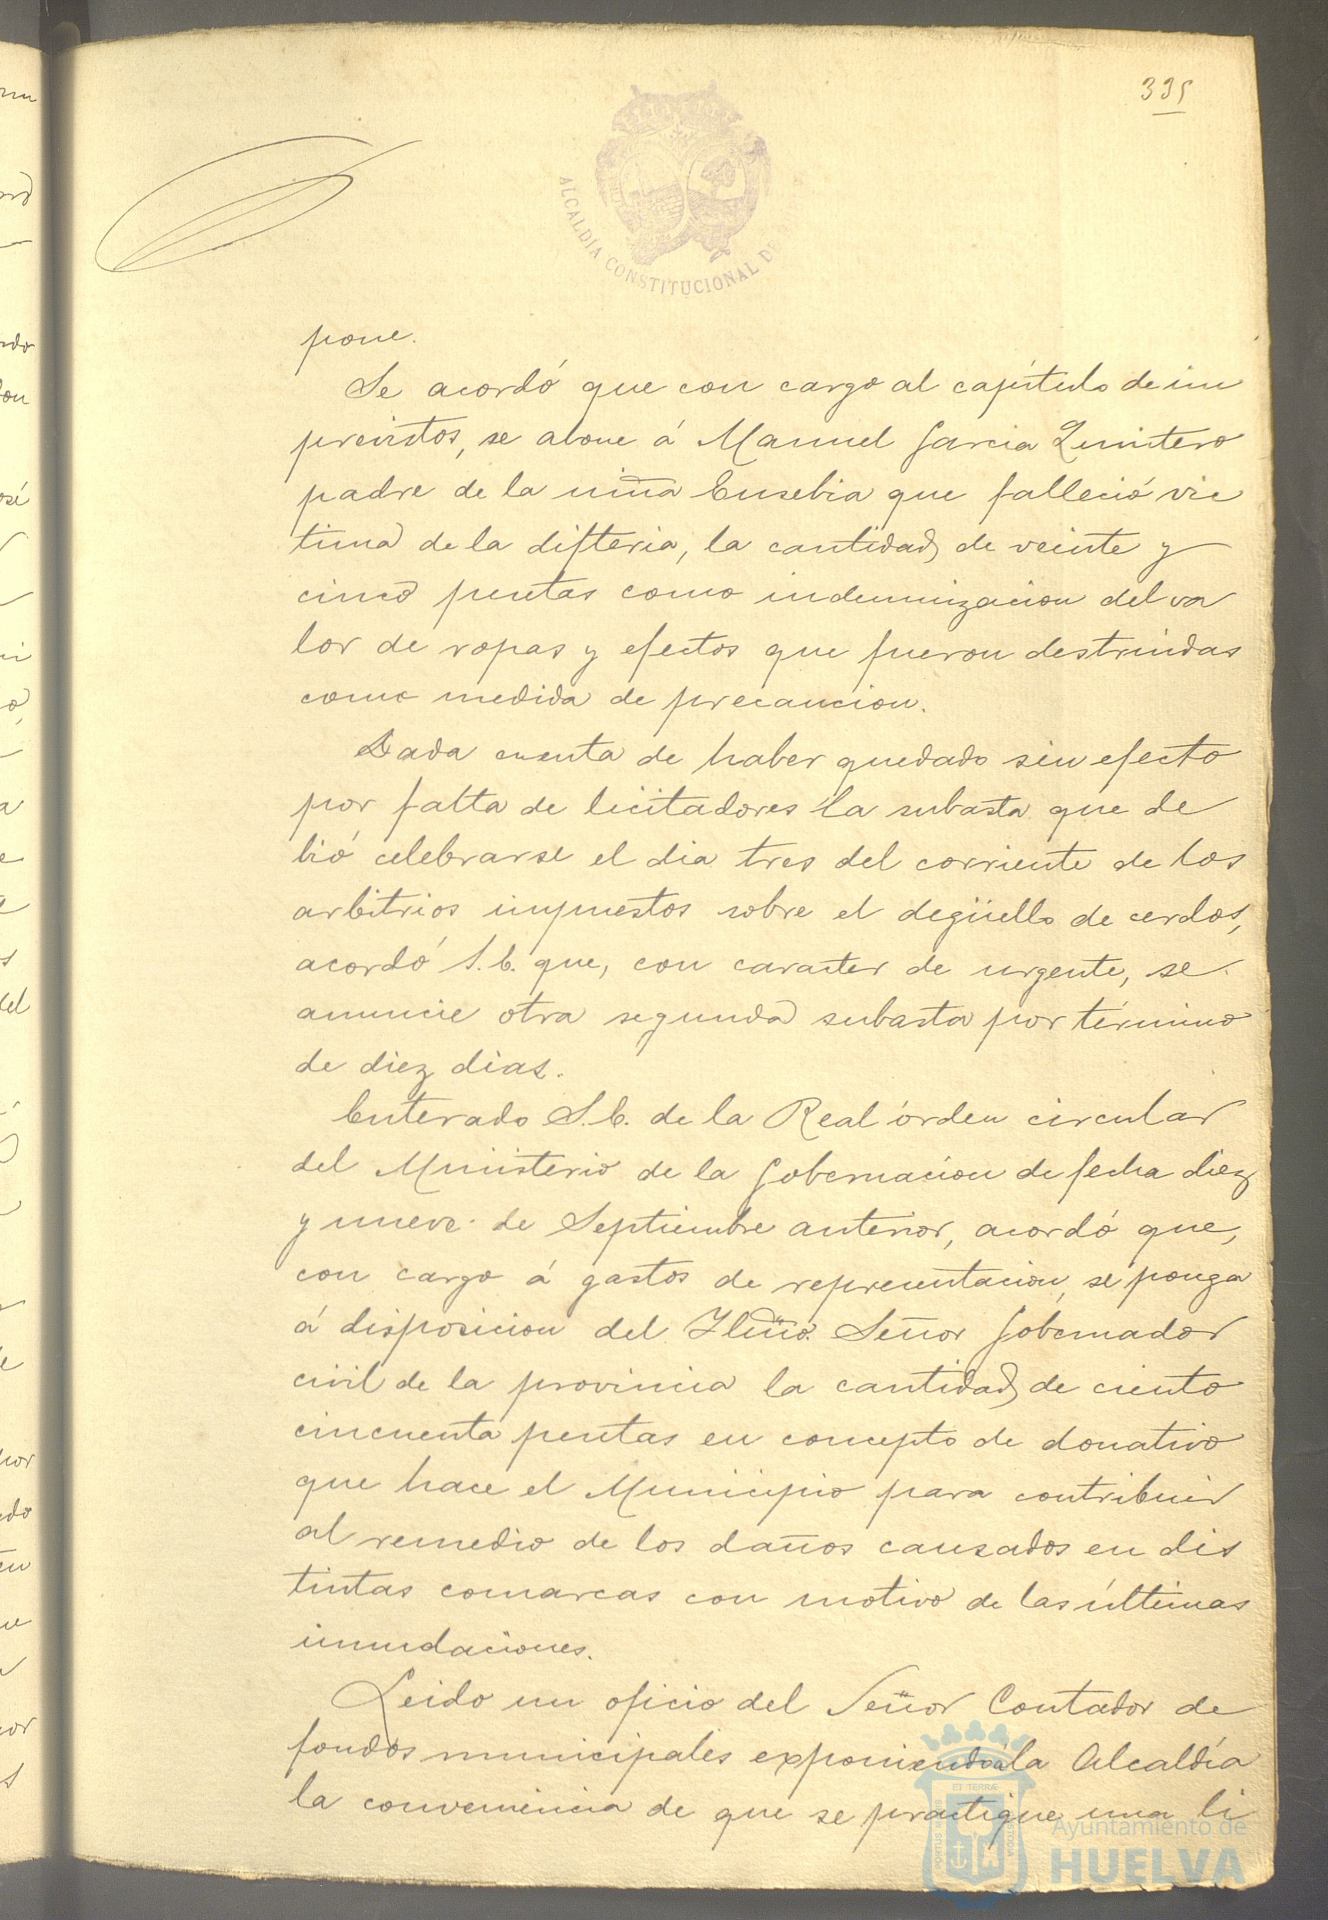 335
ALCALDÍA CONSTITUCIONAL DE
pone.
Se acordó que con cargo al capítulo de im
previstos, se abone á Manuel Garcia Quintero
padre de la niña Eusebia que falleció vic
tima de la difteria, la cantidad de veinte y
cinco pesetas como indemnizacion del va
lor de ropas y efectos que fueron destruidas
como medida de precaucion.
Dada cuenta de haber quedado sin efecto
por falta de licitadores la subasta que de
bió celebrarse el dia tres del corriente de los
arbitrios impuestos sobre el degüello de cerdos,
acordó S.E. que, con caracter de urgente, se
anuncie otra segunda subasta por término
de diez dias.
Enterado S.E. de la Real órden circular
del Ministerio de la Gobernacion de fecha diez
y nueve de Septiembre anterior, acordó que,
con cargo á gastos de representacion, se ponga
á disposicion del Ilmo. Señor Gobernador
civil de la provincia la cantidad de ciento
cincuenta pesetas en concepto de donativo
que hace el Municipio para contribuir
al remedio de los daños causados en dis
tintas comarcas con motivo de las últimas
inundaciones.
Leido un oficio del Señor Contador de
fondos municipales exponiendo á la Alcaldía
la conveniencia de que se practique una li
Ayuntamiento de
HUELVA